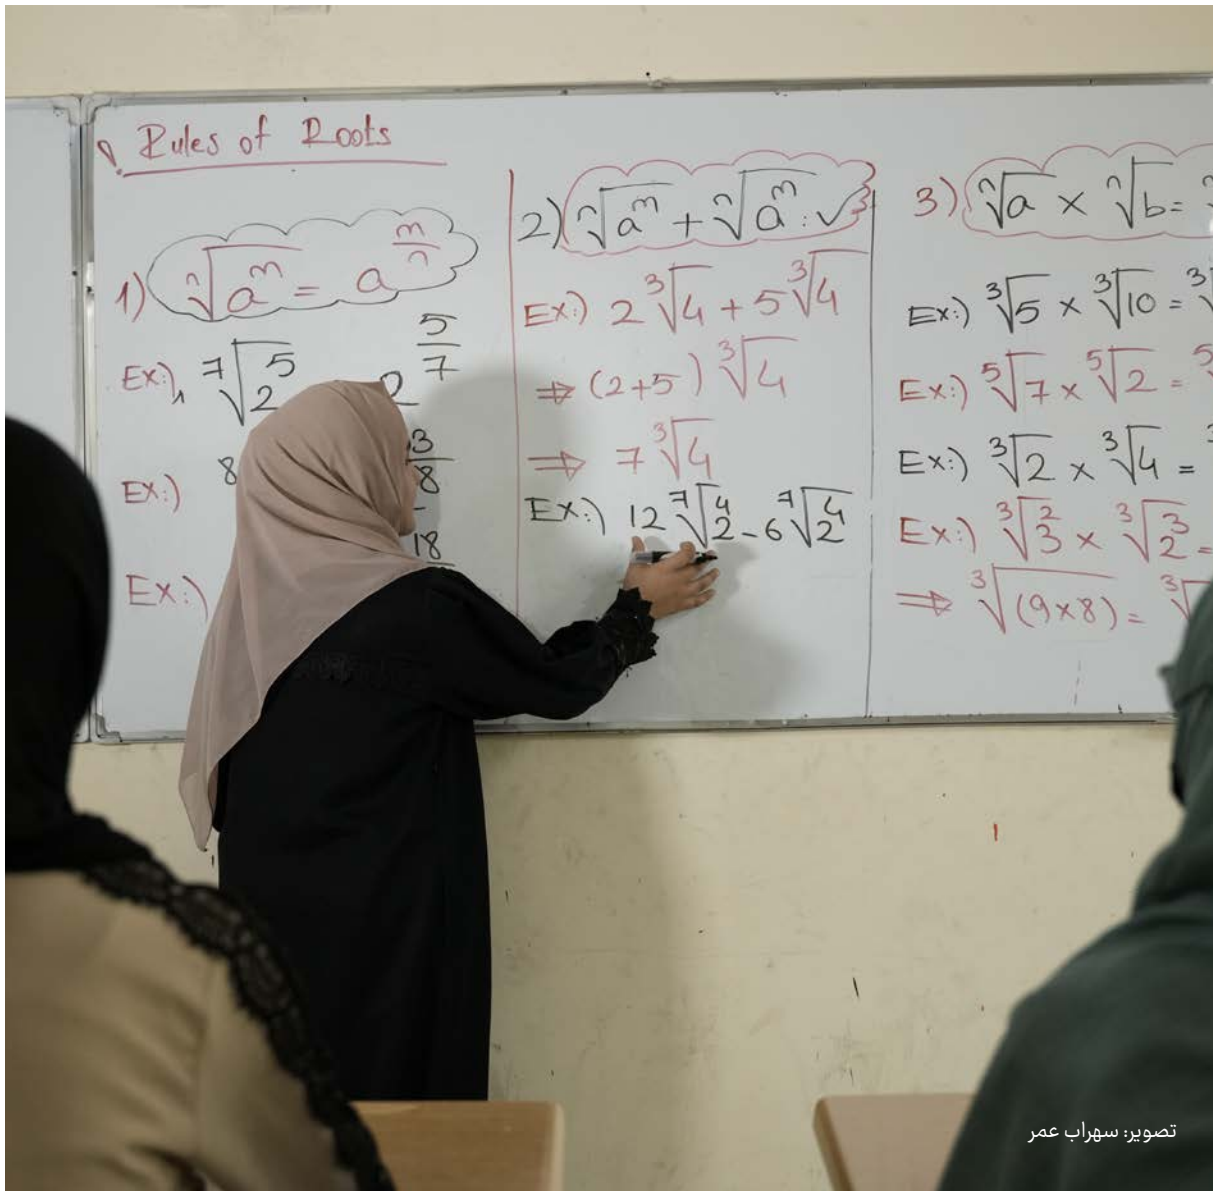 Rules of Roots
1) ⁿ√aᵐ = a^(m/n)
Ex:)₁ ⁷√2⁵ 2^(5/7)
Ex:) 8 3/8
Ex:) 18
2) ⁿ√aᵐ + ⁿ√aᵐ : ✓
Ex:) 2 ³√4 + 5 ³√4
⇒ (2+5) ³√4
⇒ 7 ³√4
Ex:) 12 ⁷√2⁴ - 6 ⁷√2⁴
3) ⁿ√a × ⁿ√b = ⁿ
Ex:) ³√5 × ³√10 = ³√
Ex:) ⁵√7 × ⁵√2 = ⁵√
Ex:) ³√2 × ³√4 = ³
Ex:) ³√3² × ³√2³ =
⇒ ³√(9×8) = ³√
تصویر: سهراب عمر